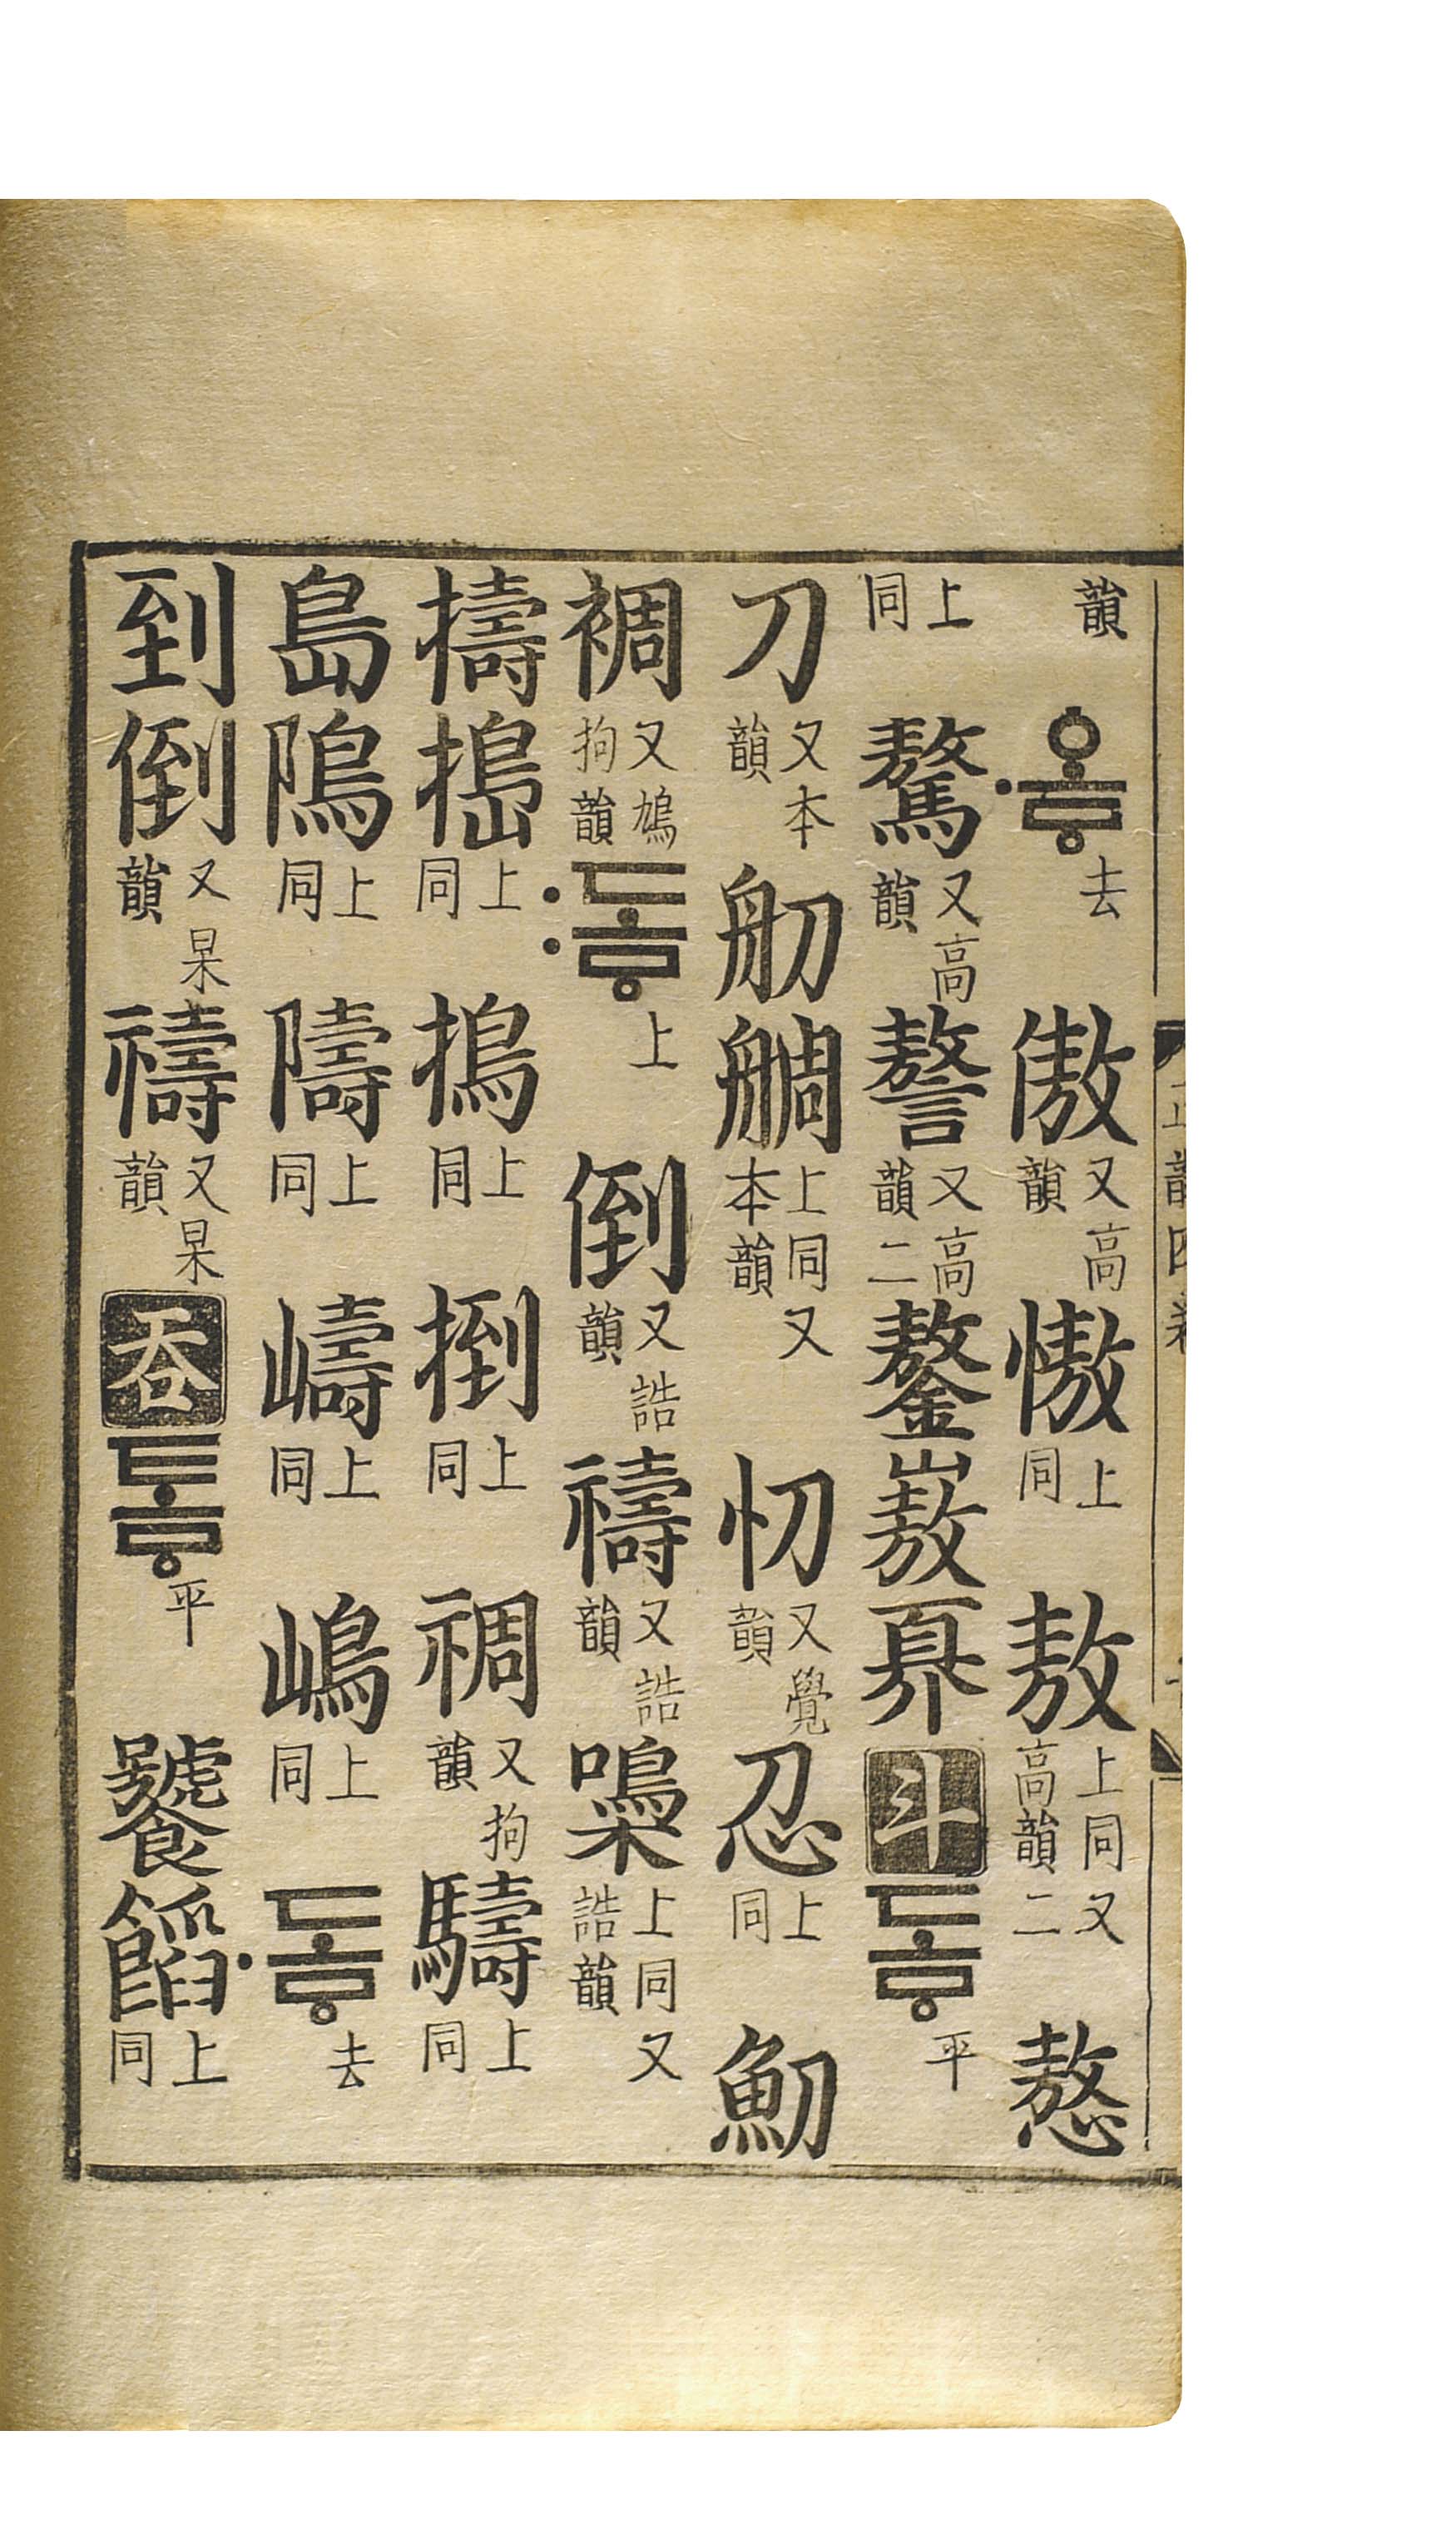 韻 ·ᅌᅩᇢ去 傲又高韻 慠上同 敖上同又高韻二
上同 驁又高韻 謷又高韻二 鏊 嶅 奡 斗 도ᇢ平
刀又本韻 舠 䑬上同又本韻 忉又覺韻 上同 魛
裯又鳩拘韻 :도ᇢ上 倒又誥韻 禱又誥韻 上同又誥韻
擣 搗上同 上同 捯上同 禂又拘韻 䮻上同
島 隝上同 隯上同 嶹上同 㠀上同 ·도ᇢ去
到 倒又杲韻 禱又杲韻 呑 도ᇢ平 上同